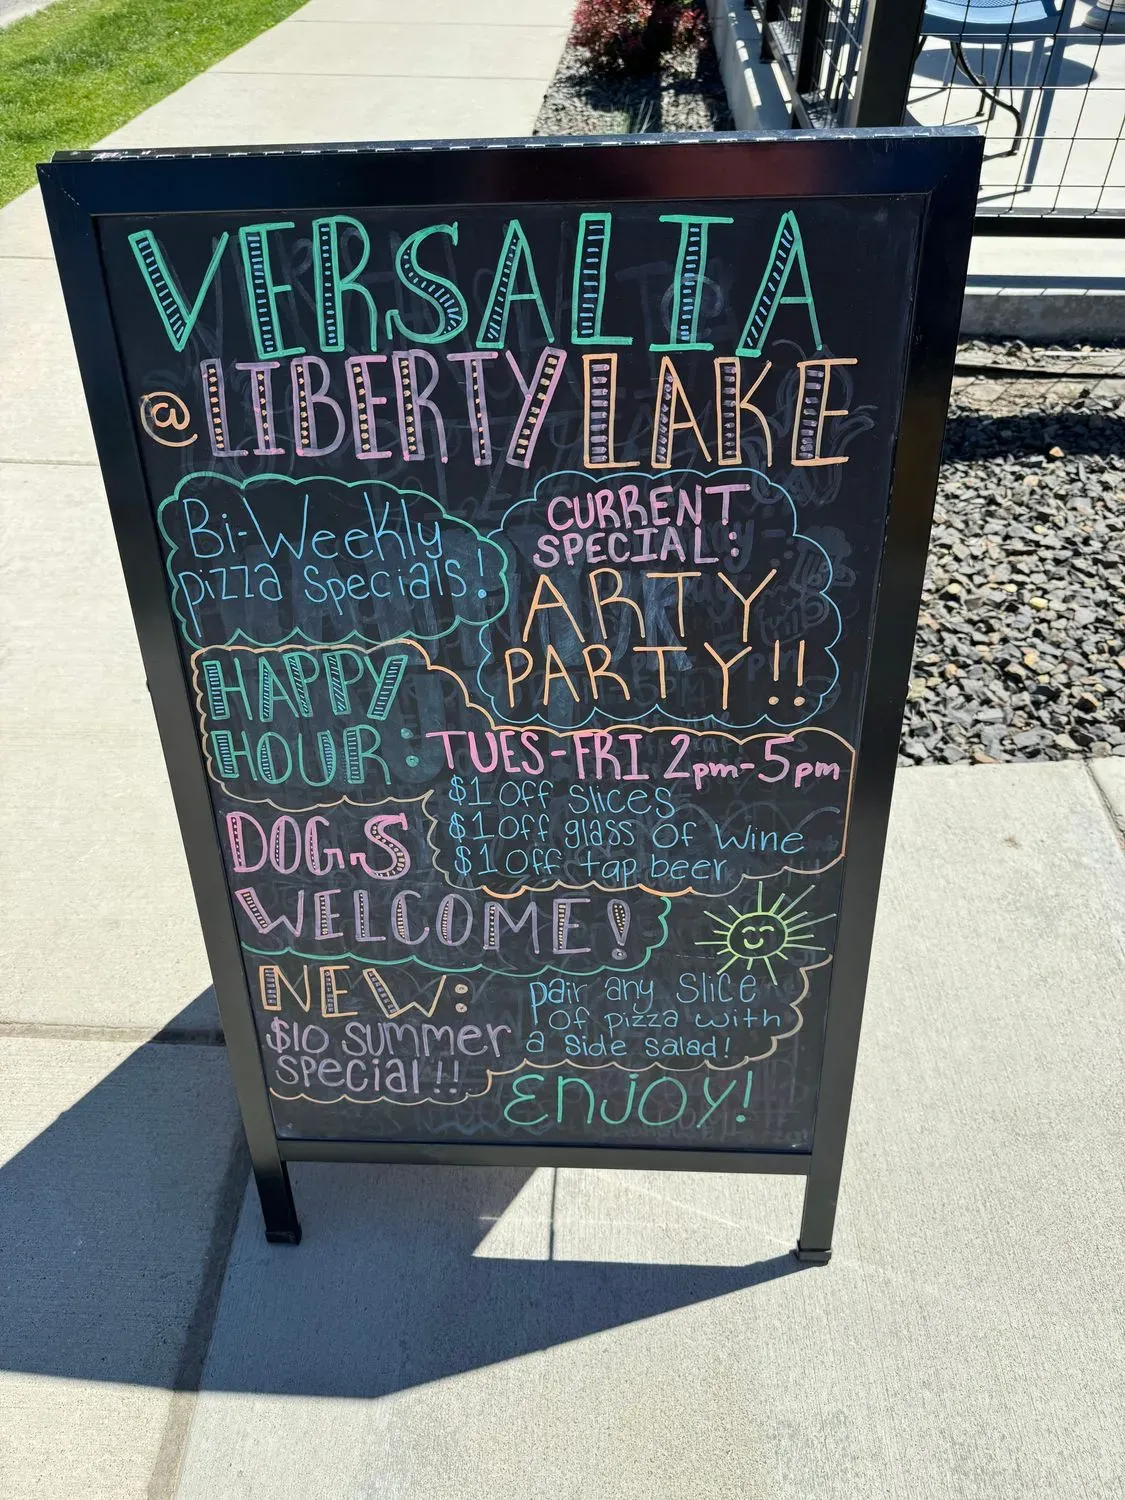 VERSALIA
@ LIBERTY LAKE
Bi-Weekly
pizza specials!
CURRENT
SPECIAL:
ARTY
PARTY!!
HAPPY
HOUR:
TUES-FRI 2pm-5pm
$1 Off Slices
$1 Off glass of Wine
$1 Off tap beer
DOGS
WELCOME!
NEW:
$10 Summer
Special!!
pair any Slice
of pizza with
a side salad!
Enjoy!